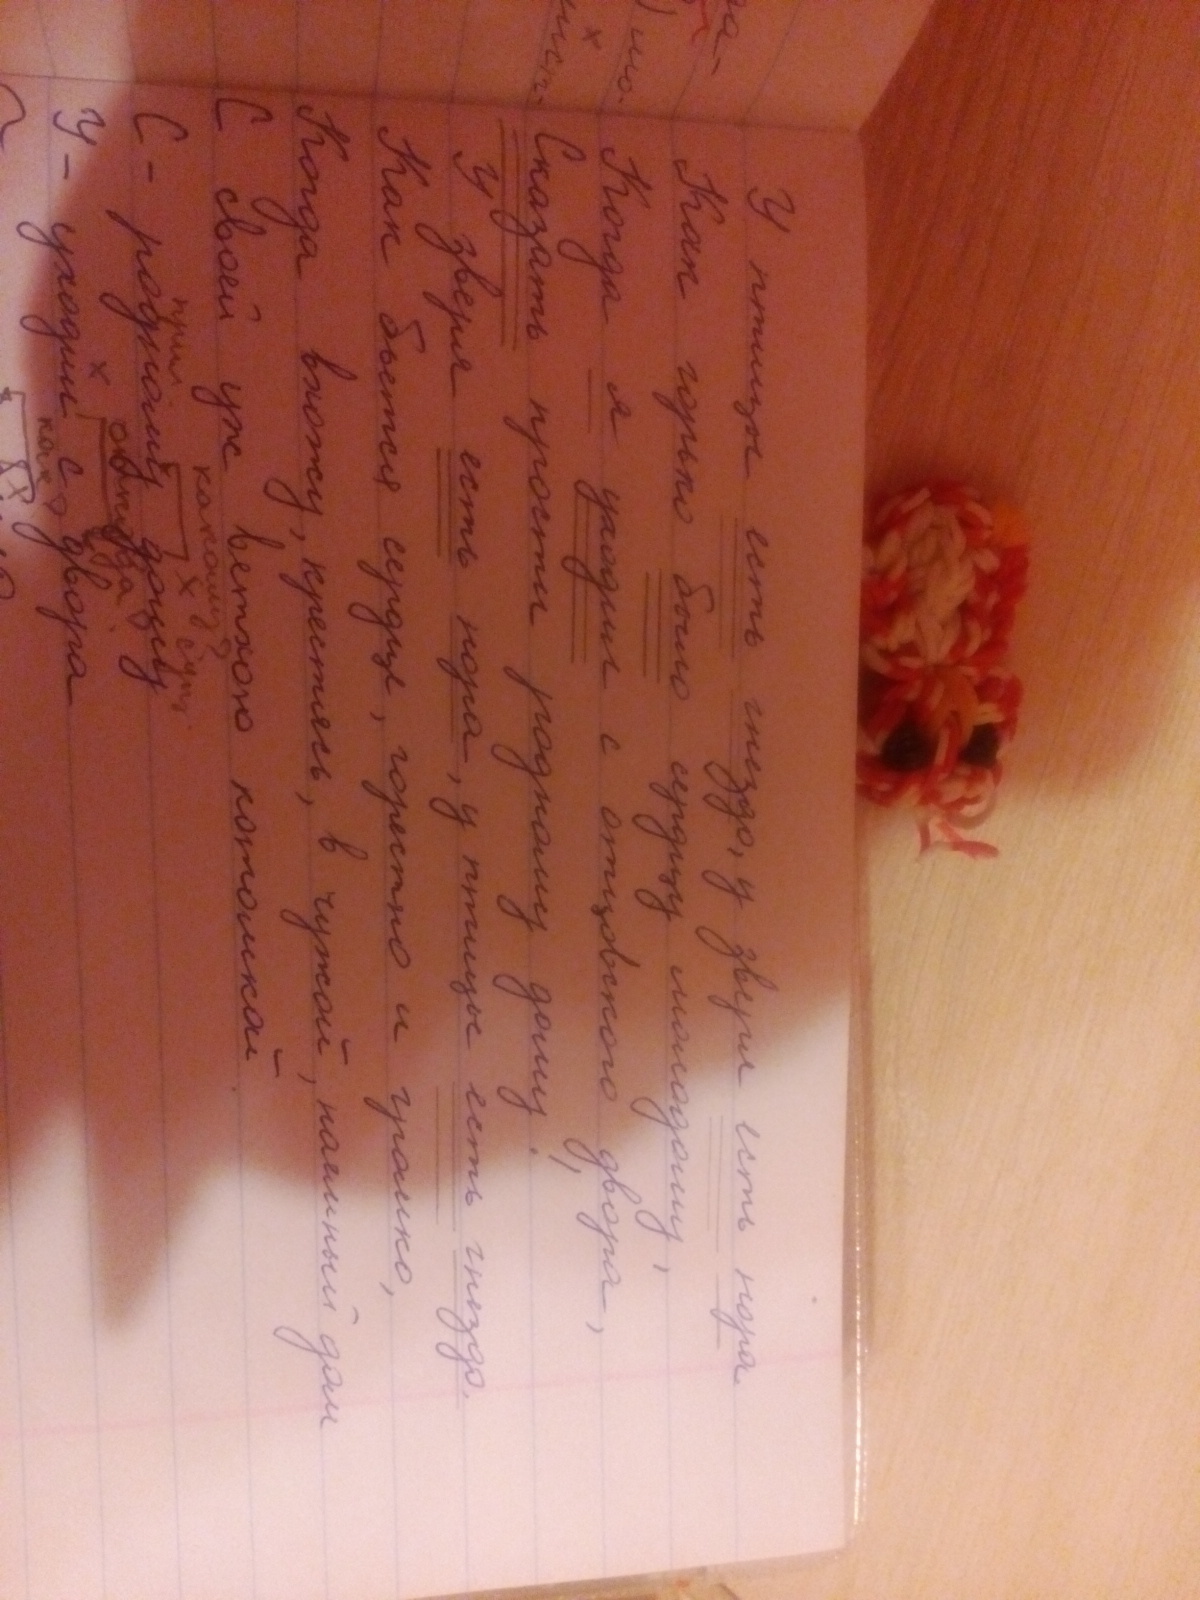 У птицы есть гнездо, у зверя есть нора.
Как горько было сердцу молодому,
Когда я уходил с отцовского двора,
Сказать прости родному дому.
У зверя есть нора, у птицы есть гнездо.
Как бьется сердце, горестно и громко,
Когда вхожу, крестясь, в чужой, наемный дом
С своей уж ветхою котомкой.
какому? сущ.
прил
С - родному дому
откуда
У - уходил с двора